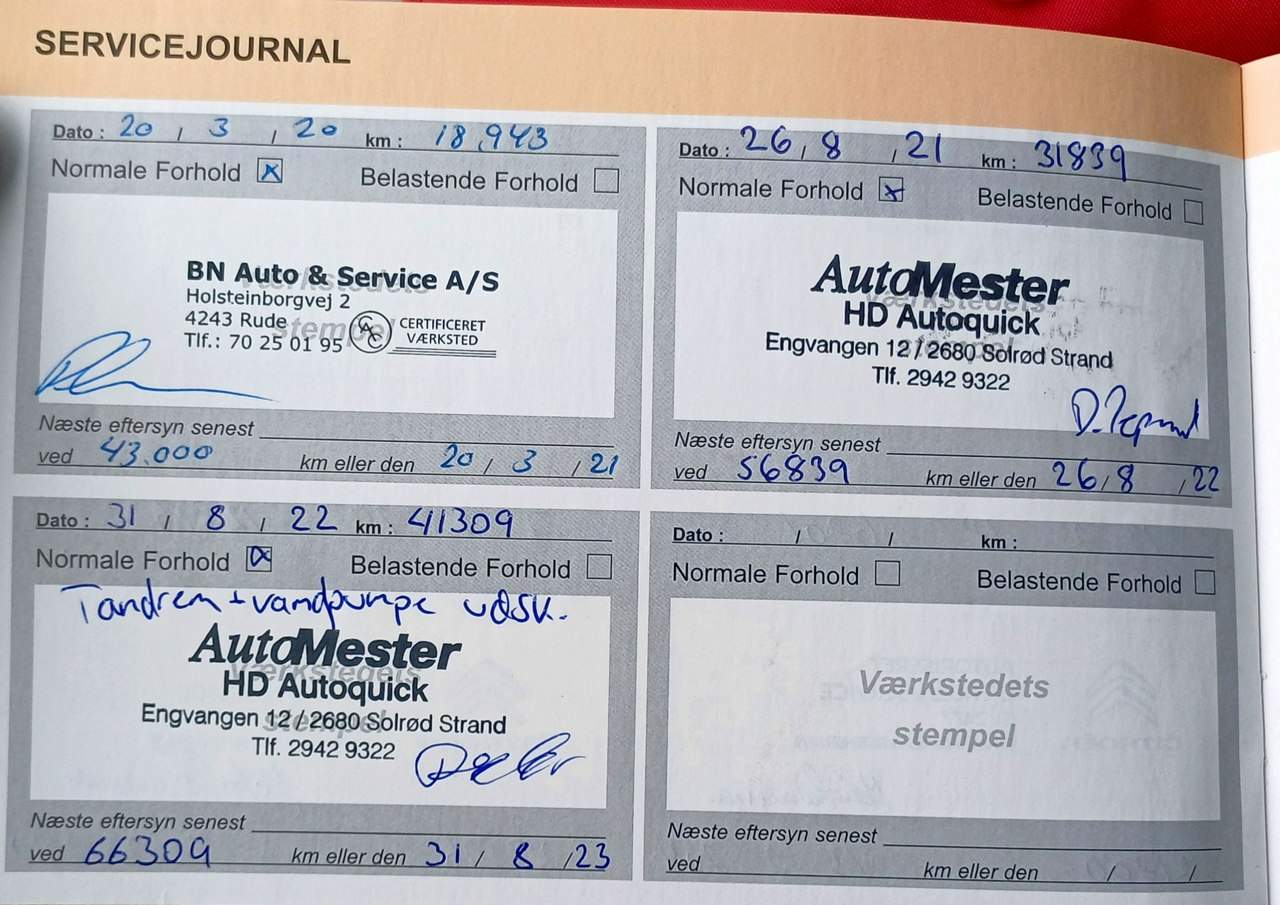 SERVICEJOURNAL
Dato : 20 / 3 / 20 km : 18.943
Normale Forhold x Belastende Forhold
Værkstedets
stempel
BN Auto & Service A/S
Holsteinborgvej 2
4243 Rude
Tlf.: 70 25 01 95
CERTIFICERET
VÆRKSTED
Næste eftersyn senest
ved 43.000 km eller den 20 / 3 / 21
Dato : 26 / 8 / 21 km : 31839
Normale Forhold x Belastende Forhold
Værkstedets
AutoMester
HD Autoquick
Engvangen 12 / 2680 Solrød Strand
Tlf. 2942 9322
Næste eftersyn senest
ved 56839 km eller den 26 / 8 / 22
Dato : 31 / 8 / 22 km : 41309
Normale Forhold x Belastende Forhold
Tandrem + vandpumpe udsk.
Værkstedets
stempel
AutoMester
HD Autoquick
Engvangen 12 / 2680 Solrød Strand
Tlf. 2942 9322
Næste eftersyn senest
ved 66309 km eller den 31 / 8 / 23
Dato : / / km :
Normale Forhold Belastende Forhold
Værkstedets
stempel
Næste eftersyn senest
ved km eller den / /